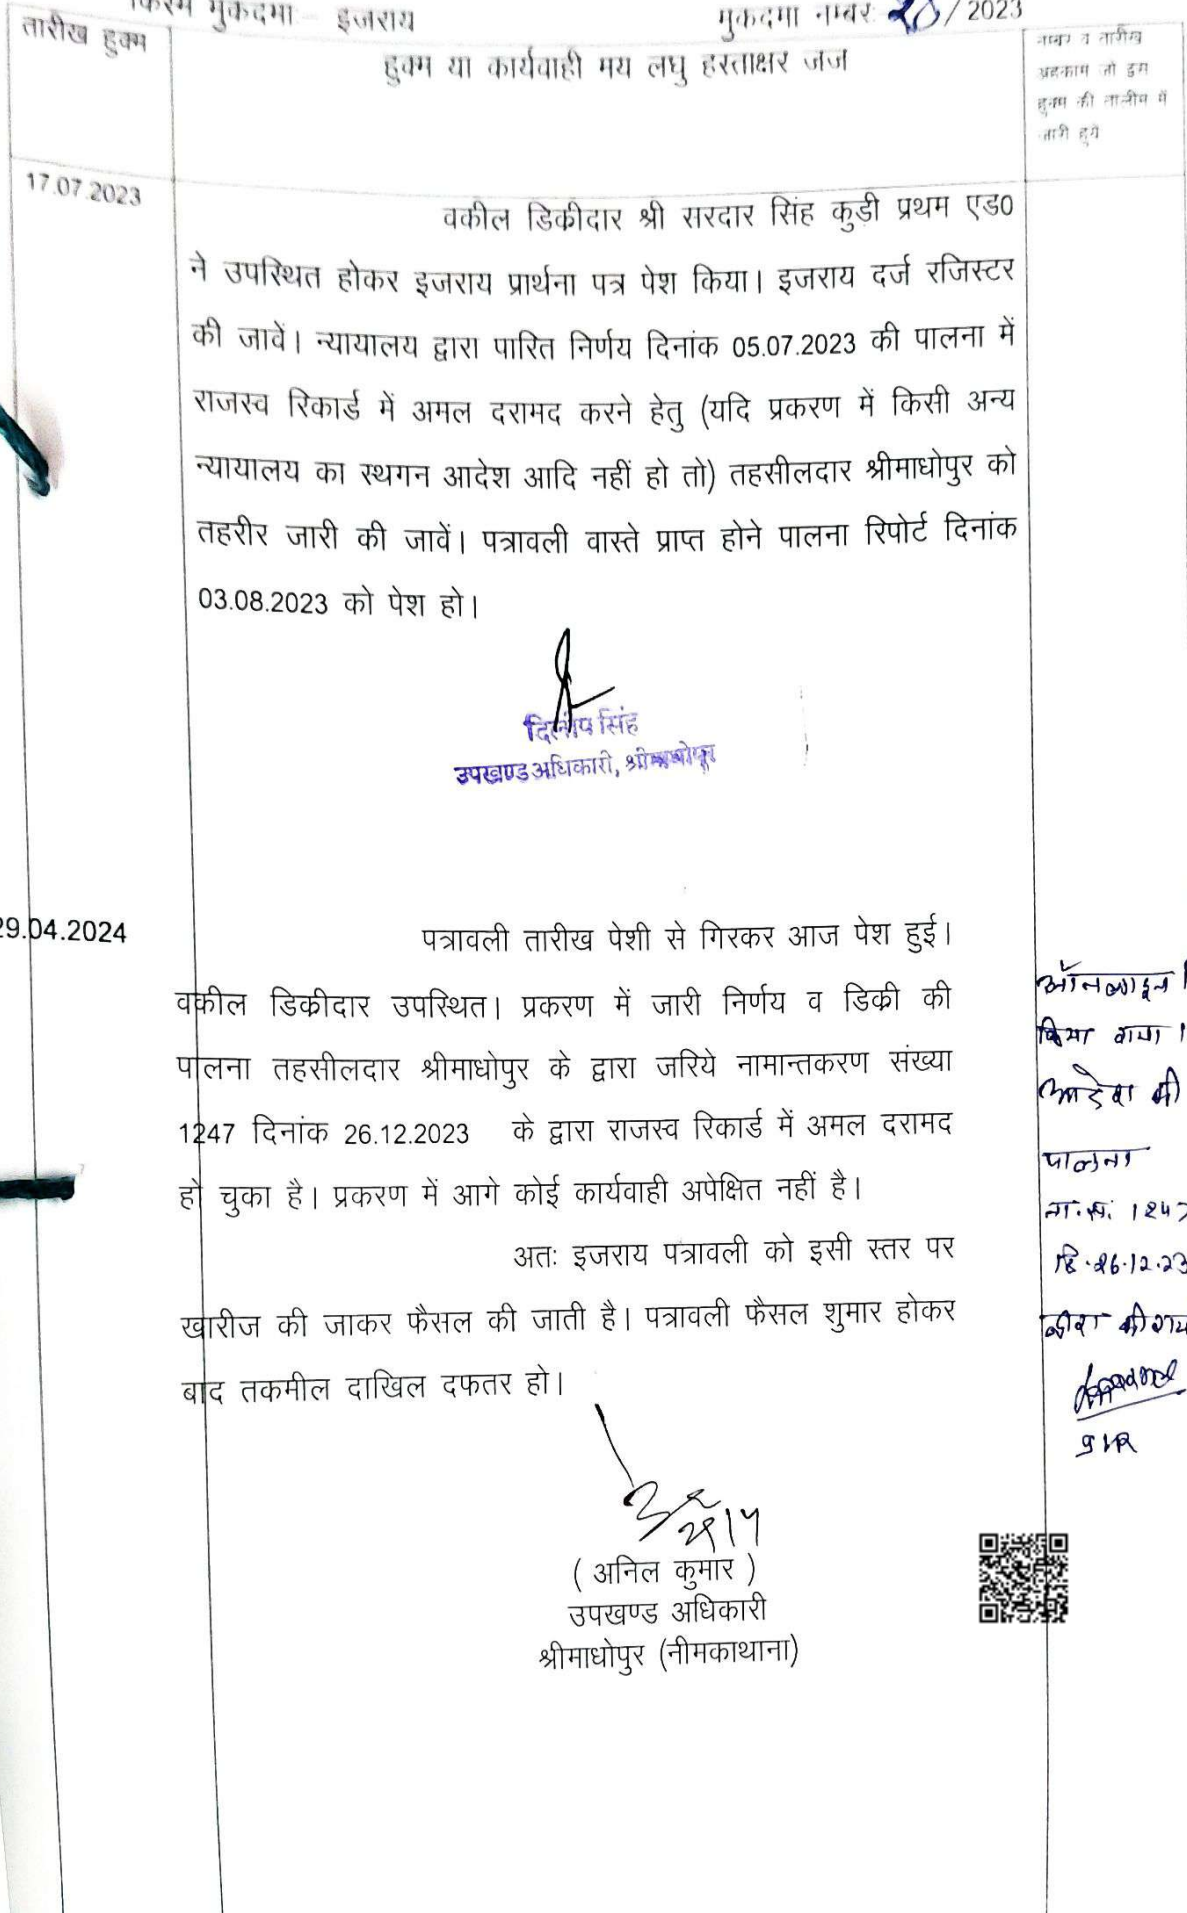 किस्म मुकदमा – इजराय मुकदमा नम्बर 20/2023
तारीख हुक्म
हुक्म या कार्यवाही मय लघु हस्ताक्षर जज
नम्बर व तारीख
अहकाम जो इस
हुक्म की तामील में
जारी हुये
17.07.2023
वकील डिकीदार श्री सरदार सिंह कुडी प्रथम एड0
ने उपस्थित होकर इजराय प्रार्थना पत्र पेश किया। इजराय दर्ज रजिस्टर
की जावें। न्यायालय द्वारा पारित निर्णय दिनांक 05.07.2023 की पालना में
राजस्व रिकार्ड में अमल दरामद करने हेतु (यदि प्रकरण में किसी अन्य
न्यायालय का स्थगन आदेश आदि नहीं हो तो) तहसीलदार श्रीमाधोपुर को
तहरीर जारी की जावें। पत्रावली वास्ते प्राप्त होने पालना रिपोर्ट दिनांक
03.08.2023 को पेश हो।
दिलीप सिंह
उपखण्ड अधिकारी, श्रीमाधोपुर
29.04.2024
पत्रावली तारीख पेशी से गिरकर आज पेश हुई।
वकील डिकीदार उपस्थित। प्रकरण में जारी निर्णय व डिकी की
पालना तहसीलदार श्रीमाधोपुर के द्वारा जरिये नामान्तकरण संख्या
1247 दिनांक 26.12.2023 के द्वारा राजस्व रिकार्ड में अमल दरामद
हो चुका है। प्रकरण में आगे कोई कार्यवाही अपेक्षित नहीं है।
अतः इजराय पत्रावली को इसी स्तर पर
खारीज की जाकर फैसल की जाती है। पत्रावली फैसल शुमार होकर
बाद तकमील दाखिल दफतर हो।
ऑनलाइन
किया गया।
आदेश की
पालना
ना.सं. 1247
दि. 26.12.23
( अनिल कुमार )
उपखण्ड अधिकारी
श्रीमाधोपुर (नीमकाथाना)